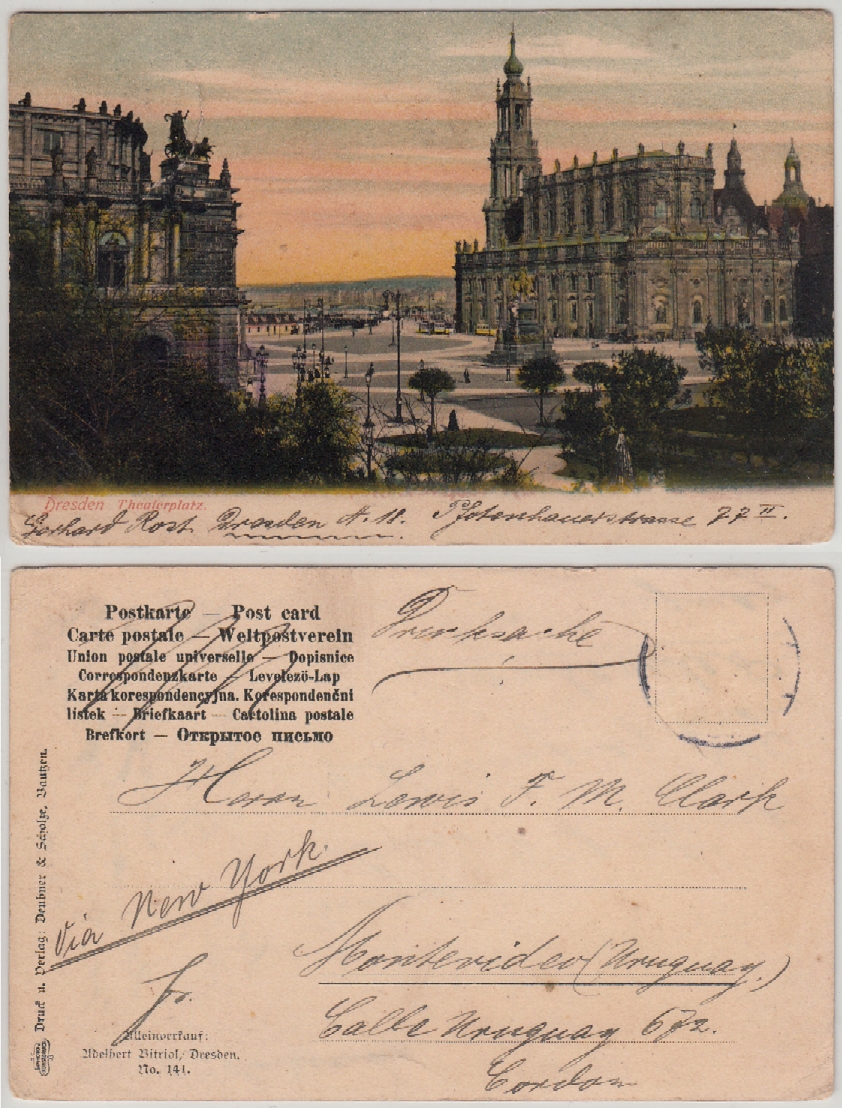 Dresden Theaterplatz.
Gerhard Rost. Dresden A. 18. Pfotenhauerstrasse 77 II.
Postkarte — Post card
Carte postale — Weltpostverein
Union postale universelle — Dopisnice
Correspondenzkarte — Levelező-Lap
Karta korespondencyjna. Korespondenčni
listek — Briefkaart — Cartolina postale
Brefkort — Открытое письмо
Drucksache
Herrn Lewis F. M. Clark
via New York.
Montevideo (Uruguay.)
Calle Uruguay 672.
Cordon
Fr.
Alleinverkauf:
Adelbert Vitriol, Dresden.
No. 141.
Druck u. Verlag: Deubner & Scholze, Bautzen.